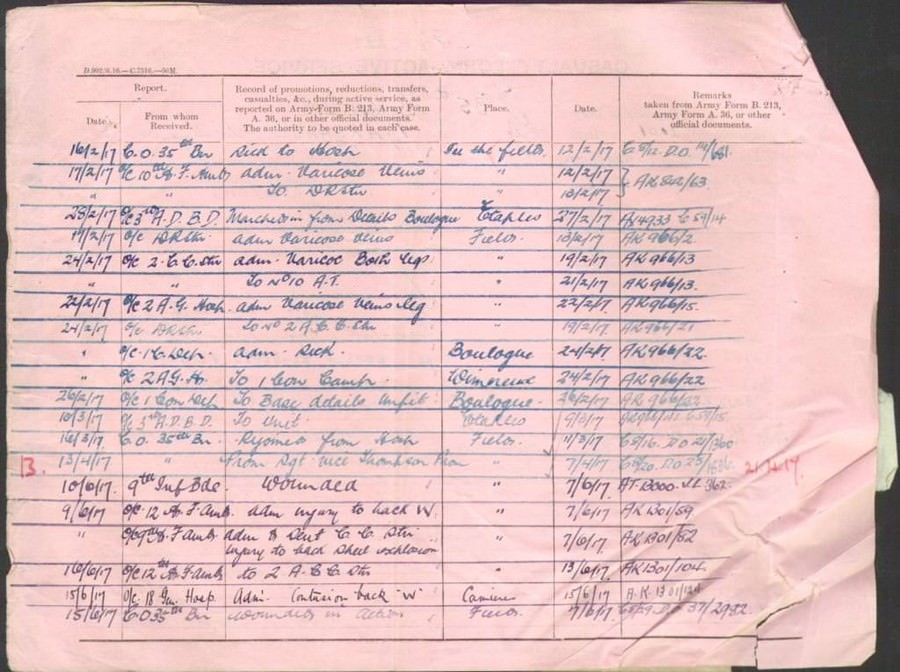 D.992/8.16.—C.7316.—50M.
Report.
Date.
From whom Received.
Record of promotions, reductions, transfers, casualties, &c., during active service, as reported on Army Form B. 213, Army Form A. 36, or in other official documents. The authority to be quoted in each case.
Place.
Date.
Remarks taken from Army Form B. 213, Army Form A. 36, or other official documents.
16/2/17 C.O. 35th Bn Sick to Hosp In the field 12/2/17
17/2/17 O/C 10th A.F. Amb adm. Varicose Veins " 12/2/17
" " To DRStn " 13/2/17 AK 802/63
28/2/17 O/C 3rd A.D.B.D. Marched in from Details Boulogne Etaples 27/2/17 AK4933 C 59/14
O/C DRStn adm Varicose veins Field 13/2/17 AK 966/2
24/2/17 O/C 2 C.C. Stn adm. Varicoc Both legs " 19/2/17 AK 966/13
" " To No 10 A.T. " 21/2/17 AK 966/13
22/2/17 O/C 2 A.G. Hosp adm Varicose Veins Leg " 22/2/17 AK 966/15
24/2/17 O/C DRStn To No 2 A.C.C. Stn 19/2/17 AK 966/21
" O/C 1 C. Dep. adm. Sick. Boulogne 24/2/17 AK 966/22
" O/C 2 A.G.H. To 1 Con Camp Wimereux 24/2/17 AK 966/22
26/2/17 O/C 1 Con Dep To Base details Unfit Boulogne 26/2/17 AK 966/22
10/3/17 O/C 3rd A.D.B.D. To Unit Etaples 9/3/17
C.O. 35th Bn Rejoined from Hosp Field 11/3/17
B. 13/4/17 " Prom Sgt vice Thompson Prom " 7/4/17
10/6/17 9th Inf Bde. Wounded " 7/6/17
9/6/17 O/C 12 A.F. Amb. adm injury to back W. " 7/6/17 AK 1301/59
" adm & Sent C.C. Stn injury to back Shell explosion " 7/6/17 AK 1301/52
16/6/17 O/C 12th A.F. Amb to 2 A.C.C. Stn " 13/6/17 AK 1301/104
15/6/17 O/C 18 Gen. Hosp. Adm. Contusion back "W" Camiers 15/6/17 A.K. 1301/124
15/6/17 C.O 35th Bn wounded in action Field 7/6/17